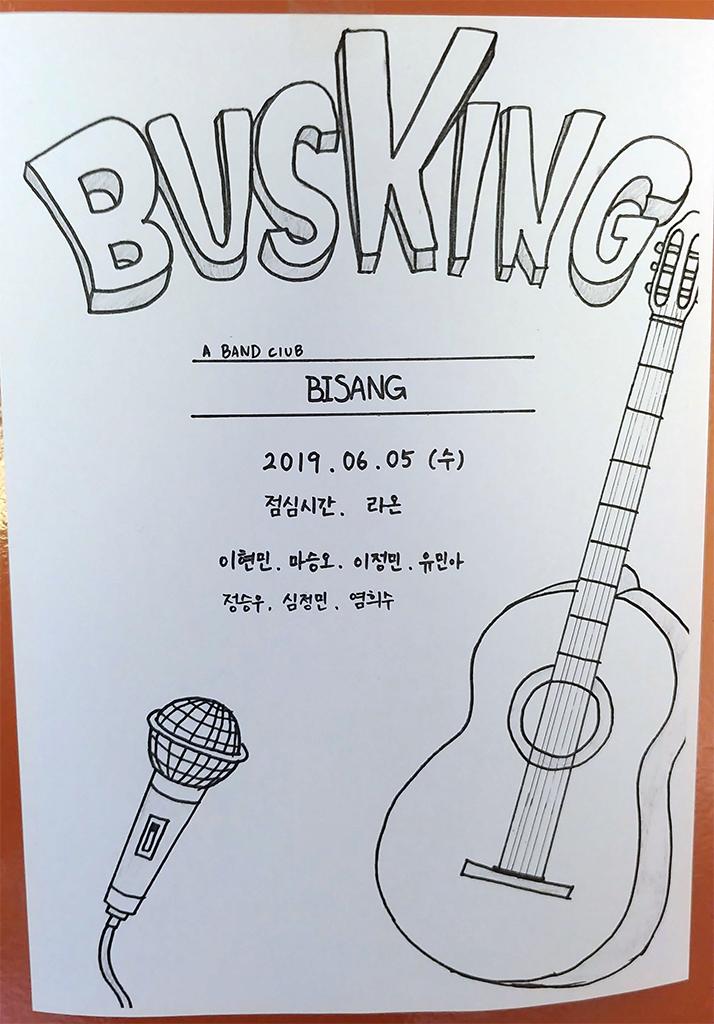 BUSKING
A BAND CLUB
BISANG
2019.06.05 (수)
점심시간. 라온
이현민. 마승오. 이정민. 유민아
정승우. 심정민. 염희수